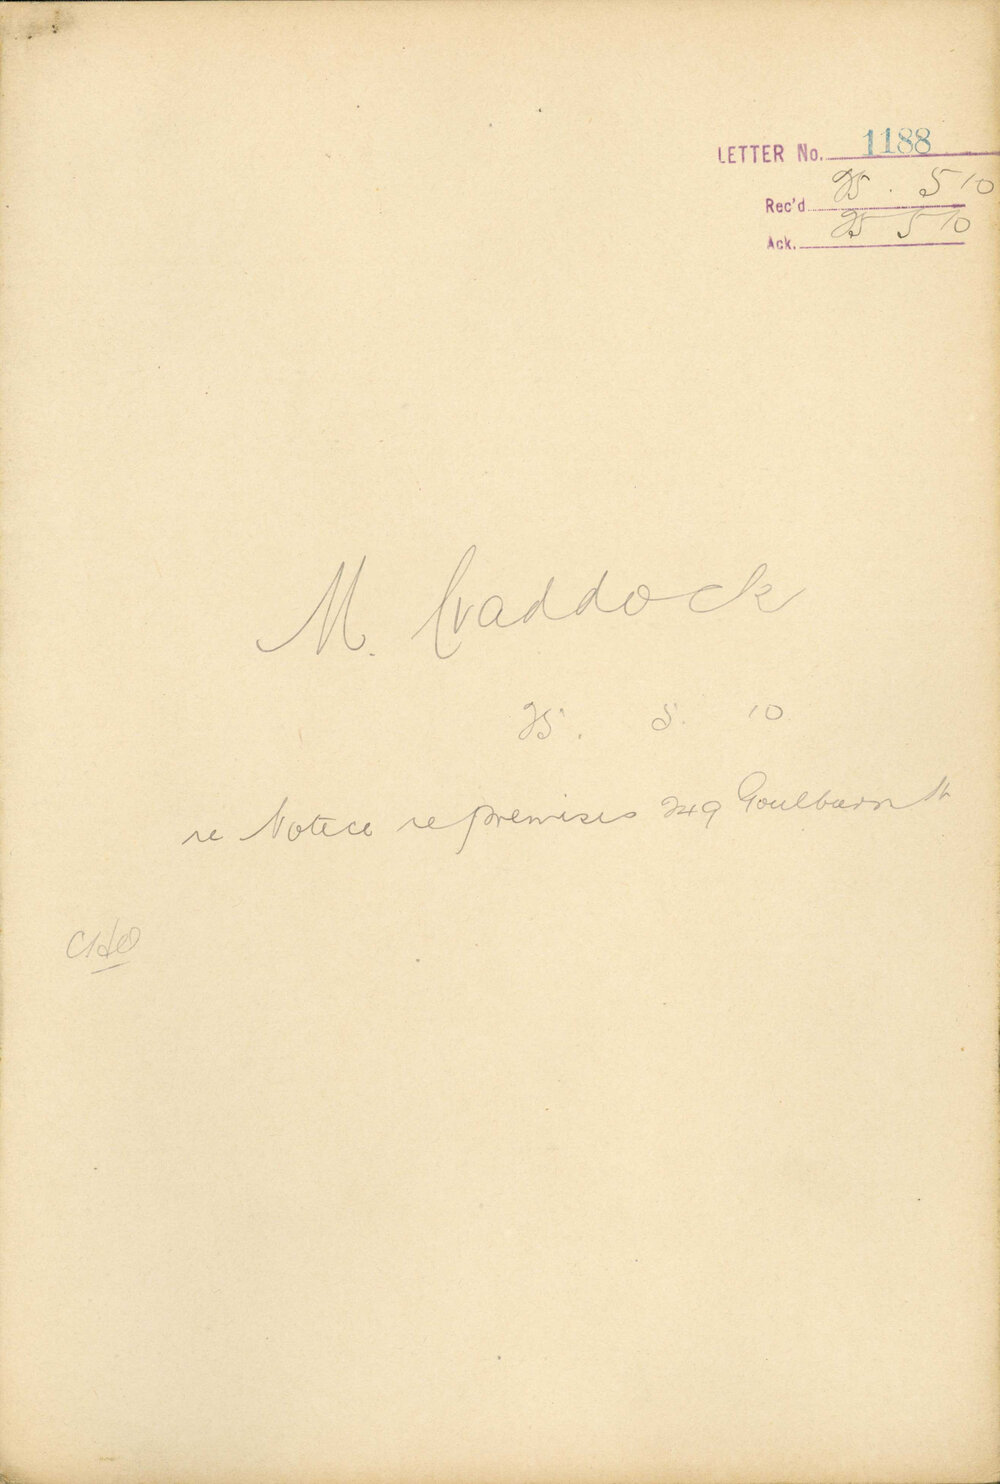 LETTER No. 1188
Rec'd 25 . 5 10
Ack. 25 5 10
M. Craddock
25 . 5 . 10
re Notice re premises 249 Goulburn St
CHO